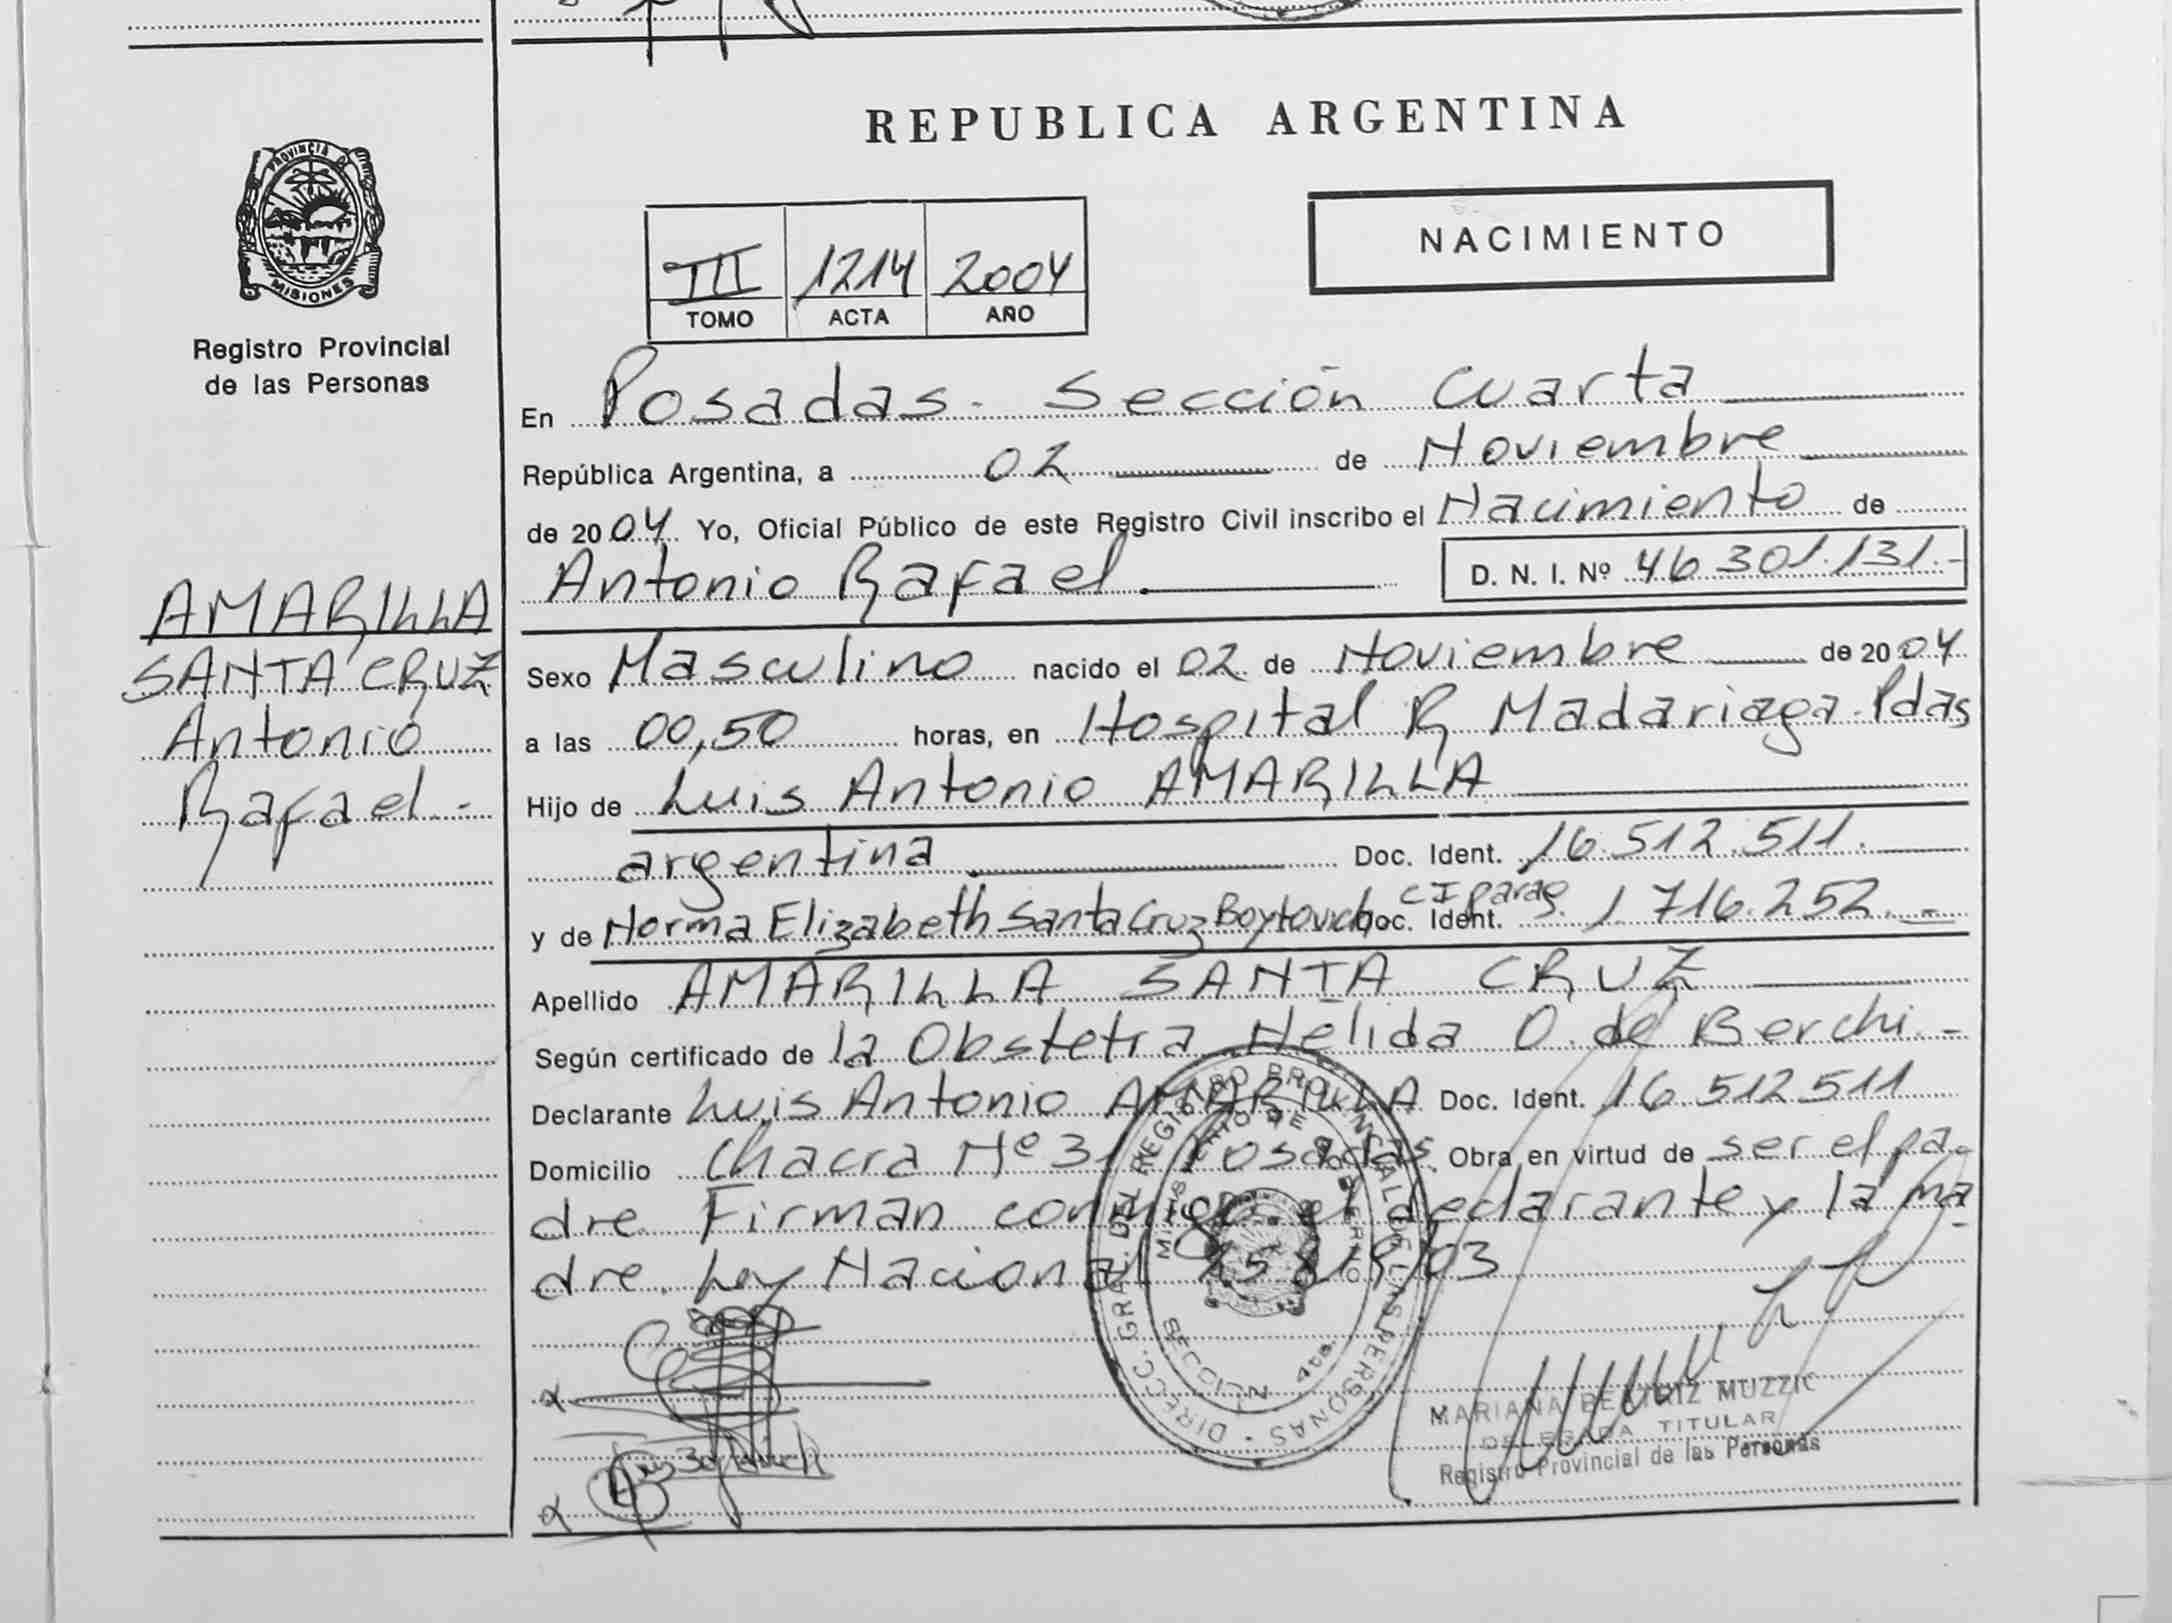 REPUBLICA ARGENTINA
PROVINCIA DE
MISIONES
Registro Provincial
de las Personas
NACIMIENTO
III 1214 2004
TOMO ACTA AÑO
En Posadas. Sección Cuarta
República Argentina, a 02 de Noviembre
de 2004 Yo, Oficial Público de este Registro Civil inscribo el Nacimiento de
Antonio Rafael. D. N. I. Nº 46 301.131.-
AMARILLA
SANTA CRUZ
Antonio
Rafael.-
Sexo Masculino nacido el 02 de Noviembre de 2004
a las 00,50 horas, en Hospital R Madariaga. Pdas
Hijo de Luis Antonio AMARILLA
argentina Doc. Ident. 16.512.511.
y de Norma Elizabeth Santa Cruz Boytovich Doc. Ident. CI parag. 1 716.252.-
Apellido AMARILLA SANTA CRUZ
Según certificado de la Obstetra Nelida O. de Berchi.-
Declarante Luis Antonio AMARILLA Doc. Ident. 16 512 511
Domicilio Chacra Nº 31 Posadas. Obra en virtud de ser el pa-
dre. Firman conmigo el declarante y la ma
dre. Ley Nacional /03
DIRECC. GRAL. DEL REGISTRO PROVINCIAL DE LAS PERSONAS
MINISTERIO DE GOBIERNO
SECCION 4ta.
MARIANA BEATRIZ MUZZIC
DELEGADA TITULAR
Registro Provincial de las Personas